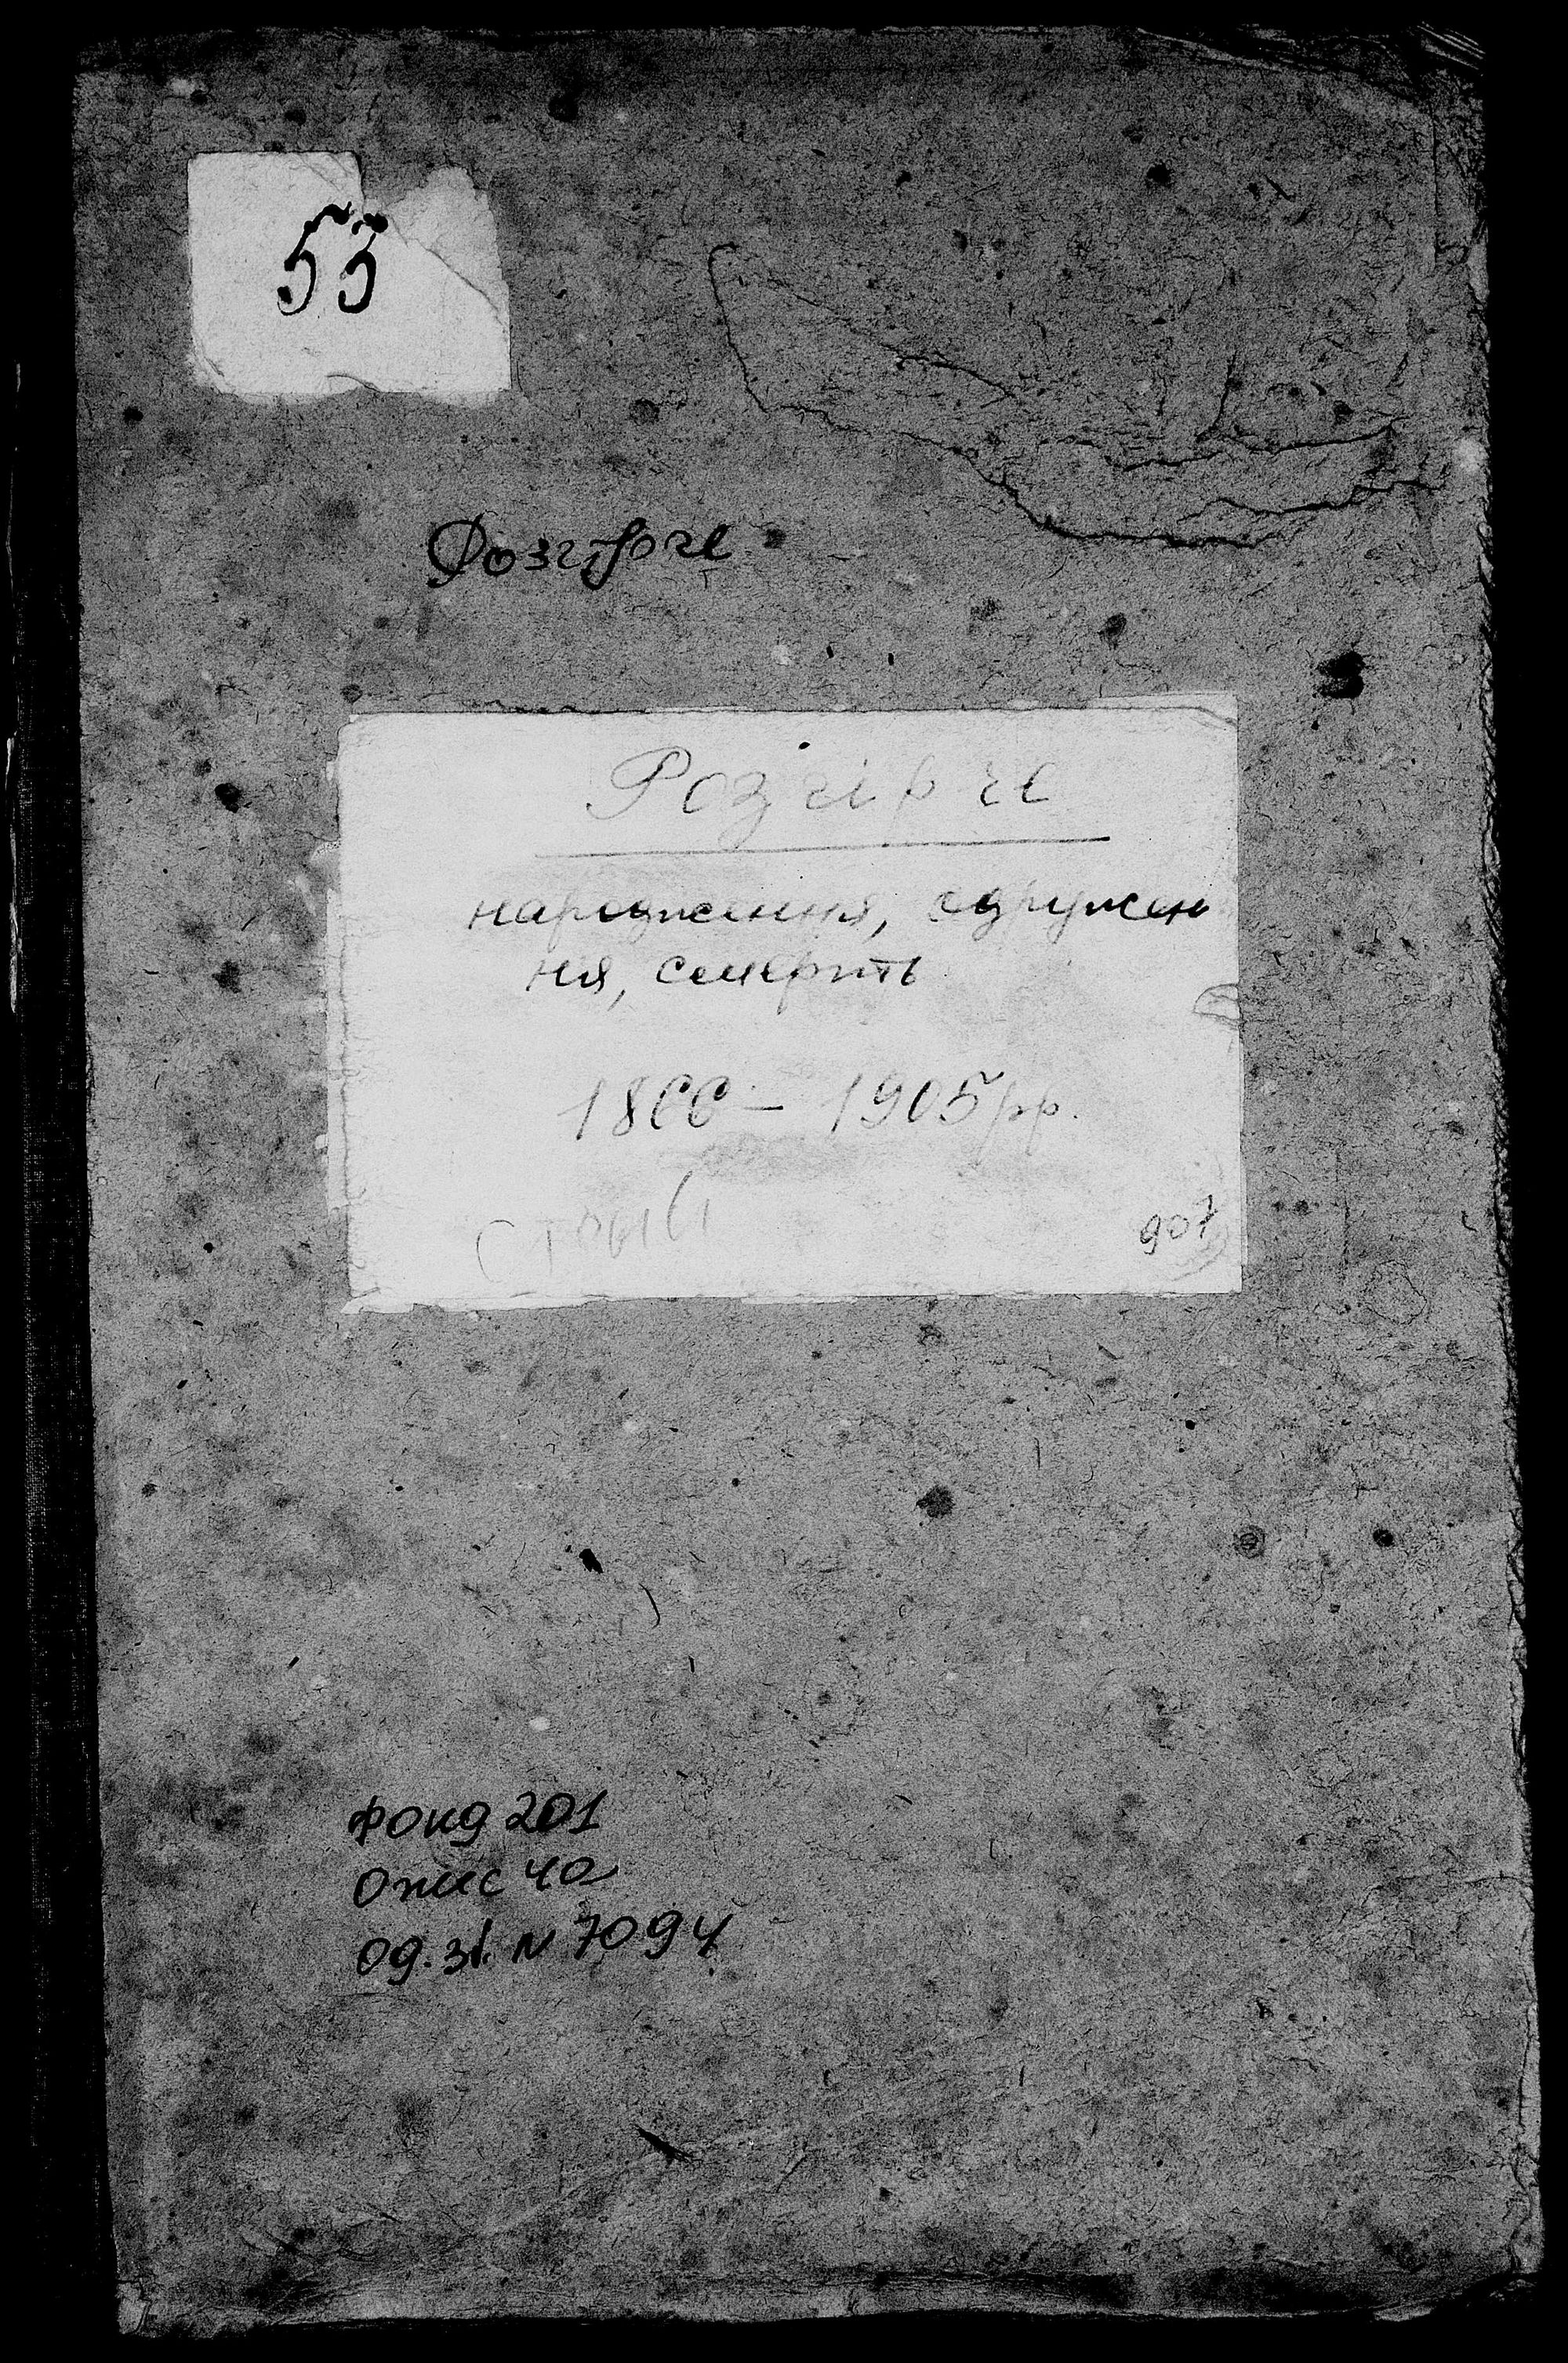 53
Розгірче
Розгірче
народження, одружен
ня, смерть
1866 – 1905 рр.
907
Фонд 201
Опис 4а
Од. зб. N 7094